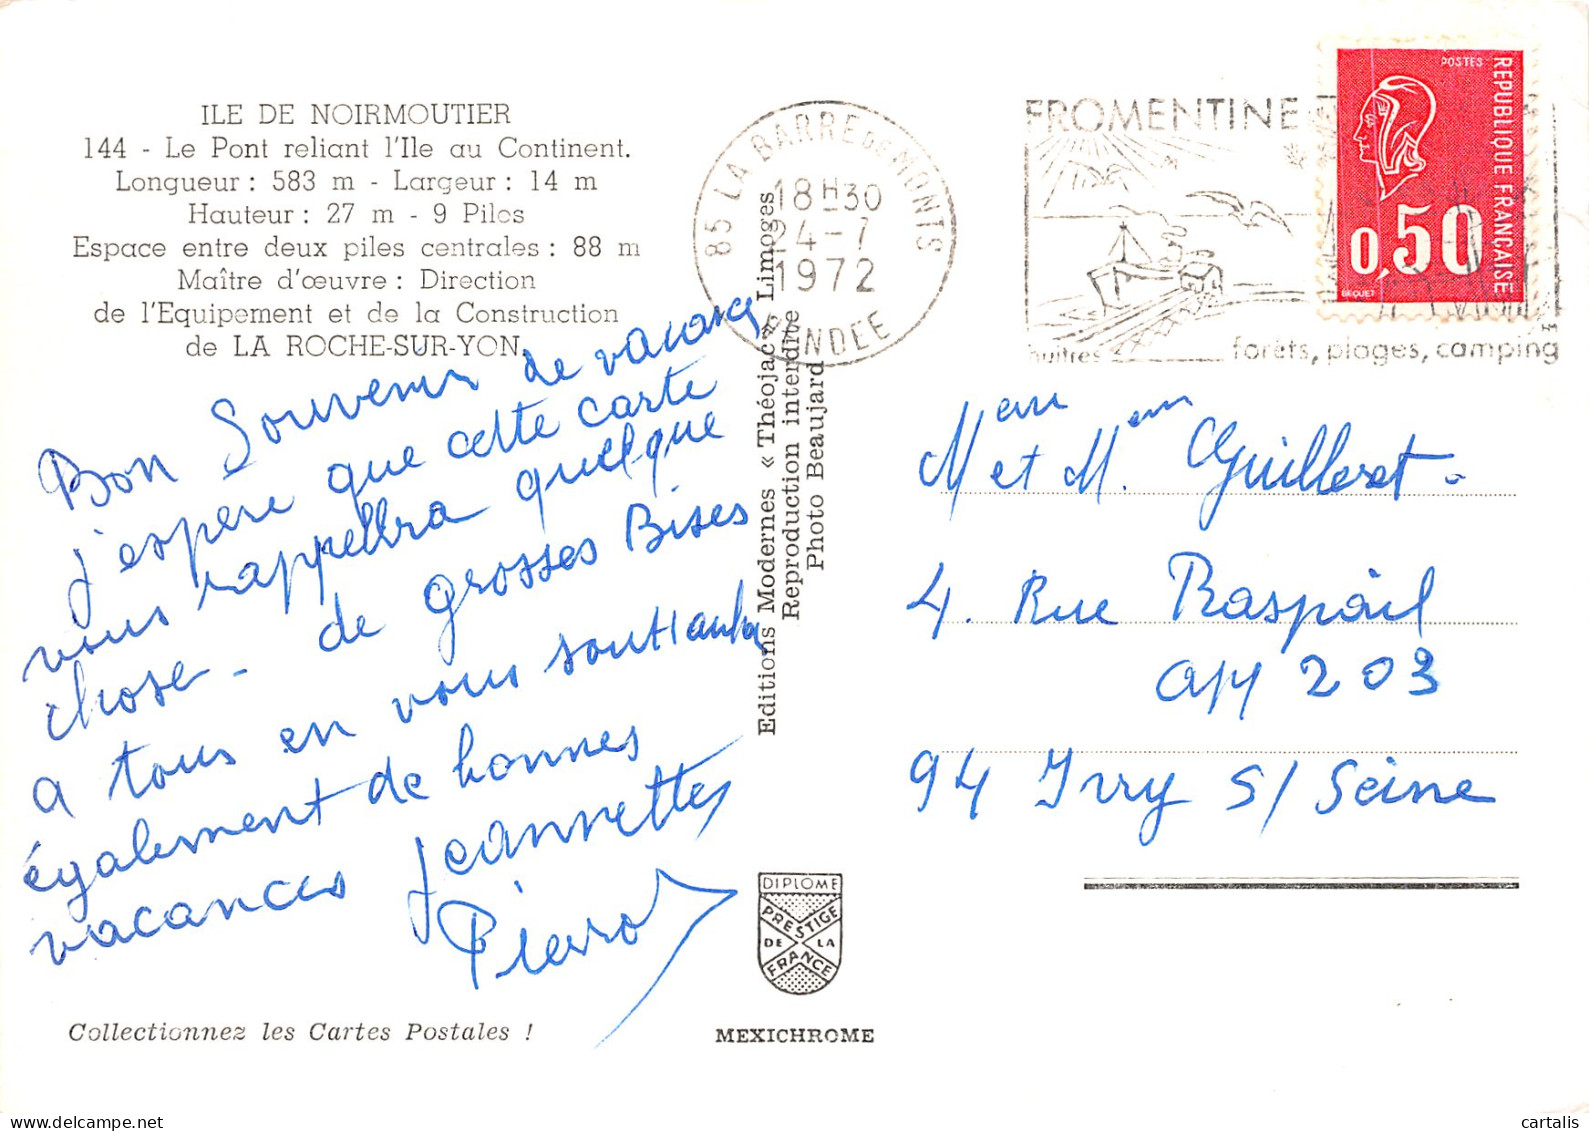 ILE DE NOIRMOUTIER
144 - Le Pont reliant l'Ile au Continent.
Longueur : 583 m - Largeur : 14 m
Hauteur : 27 m - 9 Piles
Espace entre deux piles centrales : 88 m
Maître d'œuvre : Direction
de l'Equipement et de la Construction
de LA ROCHE-SUR-YON.
Bon Souvenir de vacances
j'espère que cette carte
vous rappellra quelque
chose - de grosses Bises
a tous en vous souhaitant
également de bonnes
vacances Jeannettes
Pierrot
Collectionnez les Cartes Postales !
Editions Modernes « Théojac » Limoges
Reproduction interdite
Photo Beaujard
DIPLOME
PRESTIGE
DE LA
FRANCE
MEXICHROME
85 LA BARRE DE MONTS
18H30
24-7
1972
VENDEE
FROMENTINE
huîtres
forêts, plages, camping
POSTES
REPUBLIQUE FRANÇAISE
0,50
BEQUET
M et M. Guilleret -
4. Rue Raspail
app 203
94 Ivry S/ Seine
cartalis